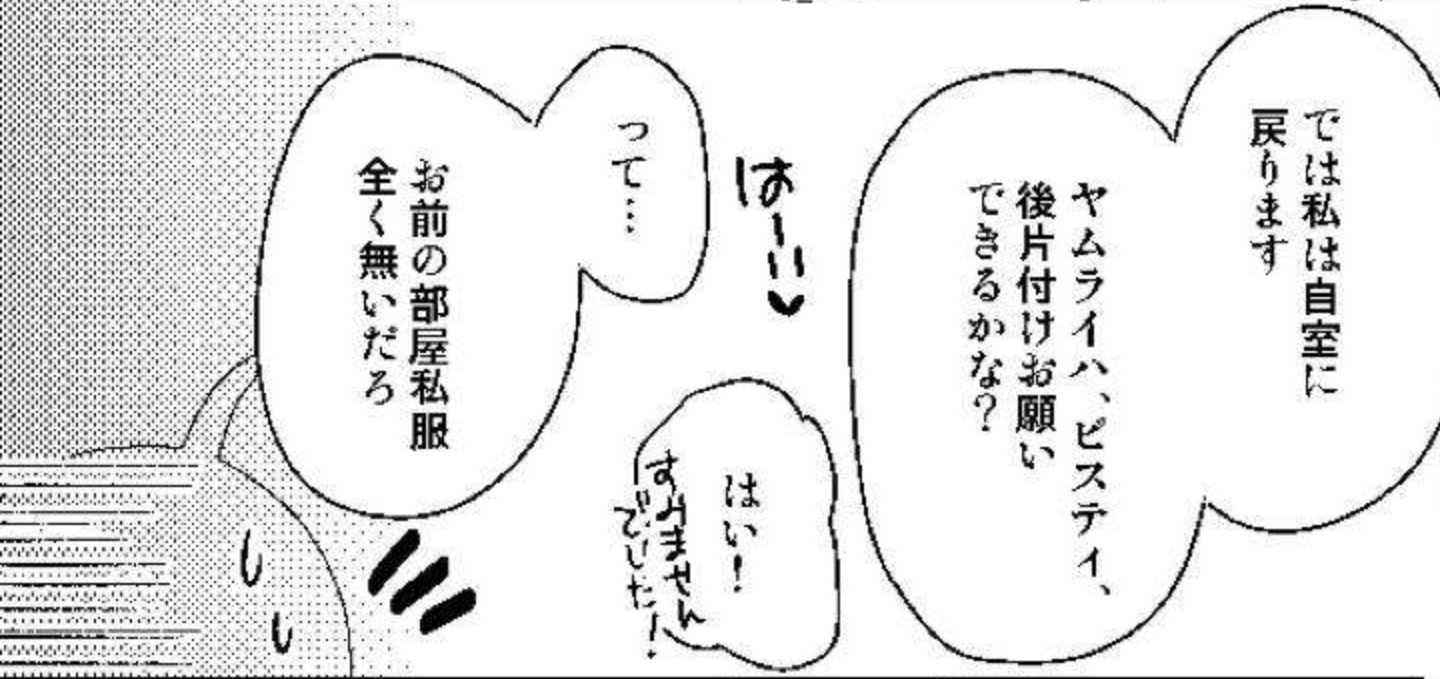 では私は自室に
戻ります
ヤムライハ、ピスティ、
後片付けお願い
できるかな?
はーい
はい!
すみません
でした!
って…
お前の部屋私服
全く無いだろ